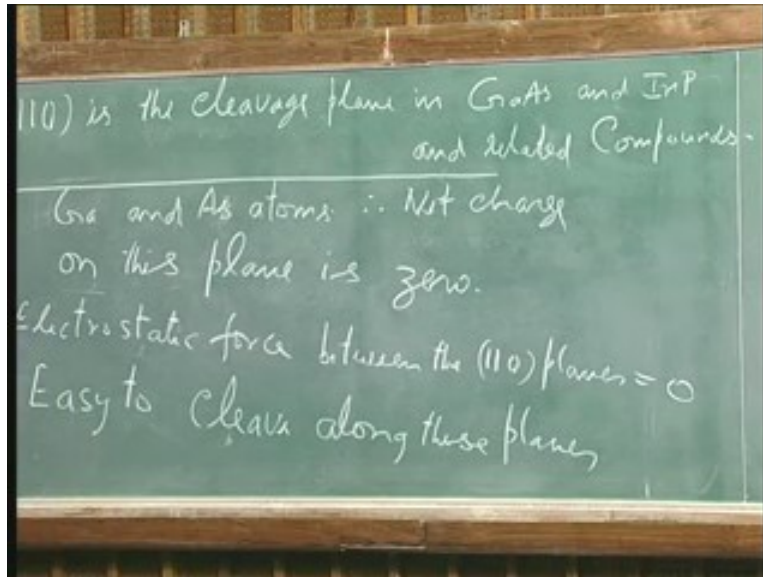 110) is the cleavage plane in GaAs and InP
and related Compounds.
Ga and As atoms ∴ Net charge
on this plane is zero.
Electrostatic force between the (110) planes = 0
Easy to cleave along these planes